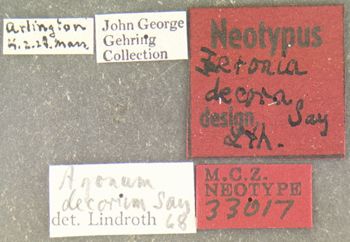 Arlington
Mass
John George
Gehring
Collection
Neotypus
Feronia
decora
Say
design.
Lth.
Agonum
decorum Say
det. Lindroth 68
M.C.Z.
NEOTYPE
33017